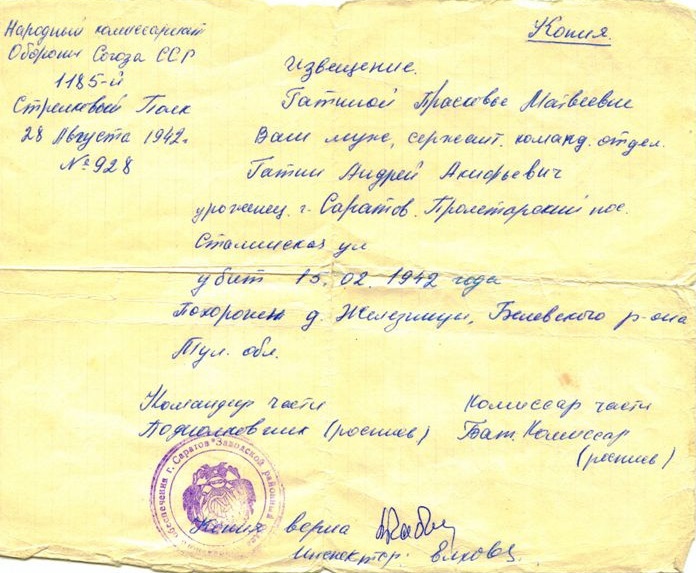 Копия.
Народный комиссариат
Обороны Союза ССР
1185-й
Стрелковый Полк
28 Августа 1942г.
№ 928
Извещение.
Гатиной Прасковье Матвеевне
Ваш муж, сержант. команд. отдел.
Гатин Андрей Акифьевич
уроженец г. Саратов. Пролетарский пос.
Сталинская ул
убит 15. 02. 1942 года
Похоронен д. Железница, Белевского р-она
Тул. обл.
Командир части
Подполковник (роспись)
Комиссар части
Бат. Комиссар
(роспись)
обеспечения г. Саратов * Заводской районный
Копия верна
Инспектор: